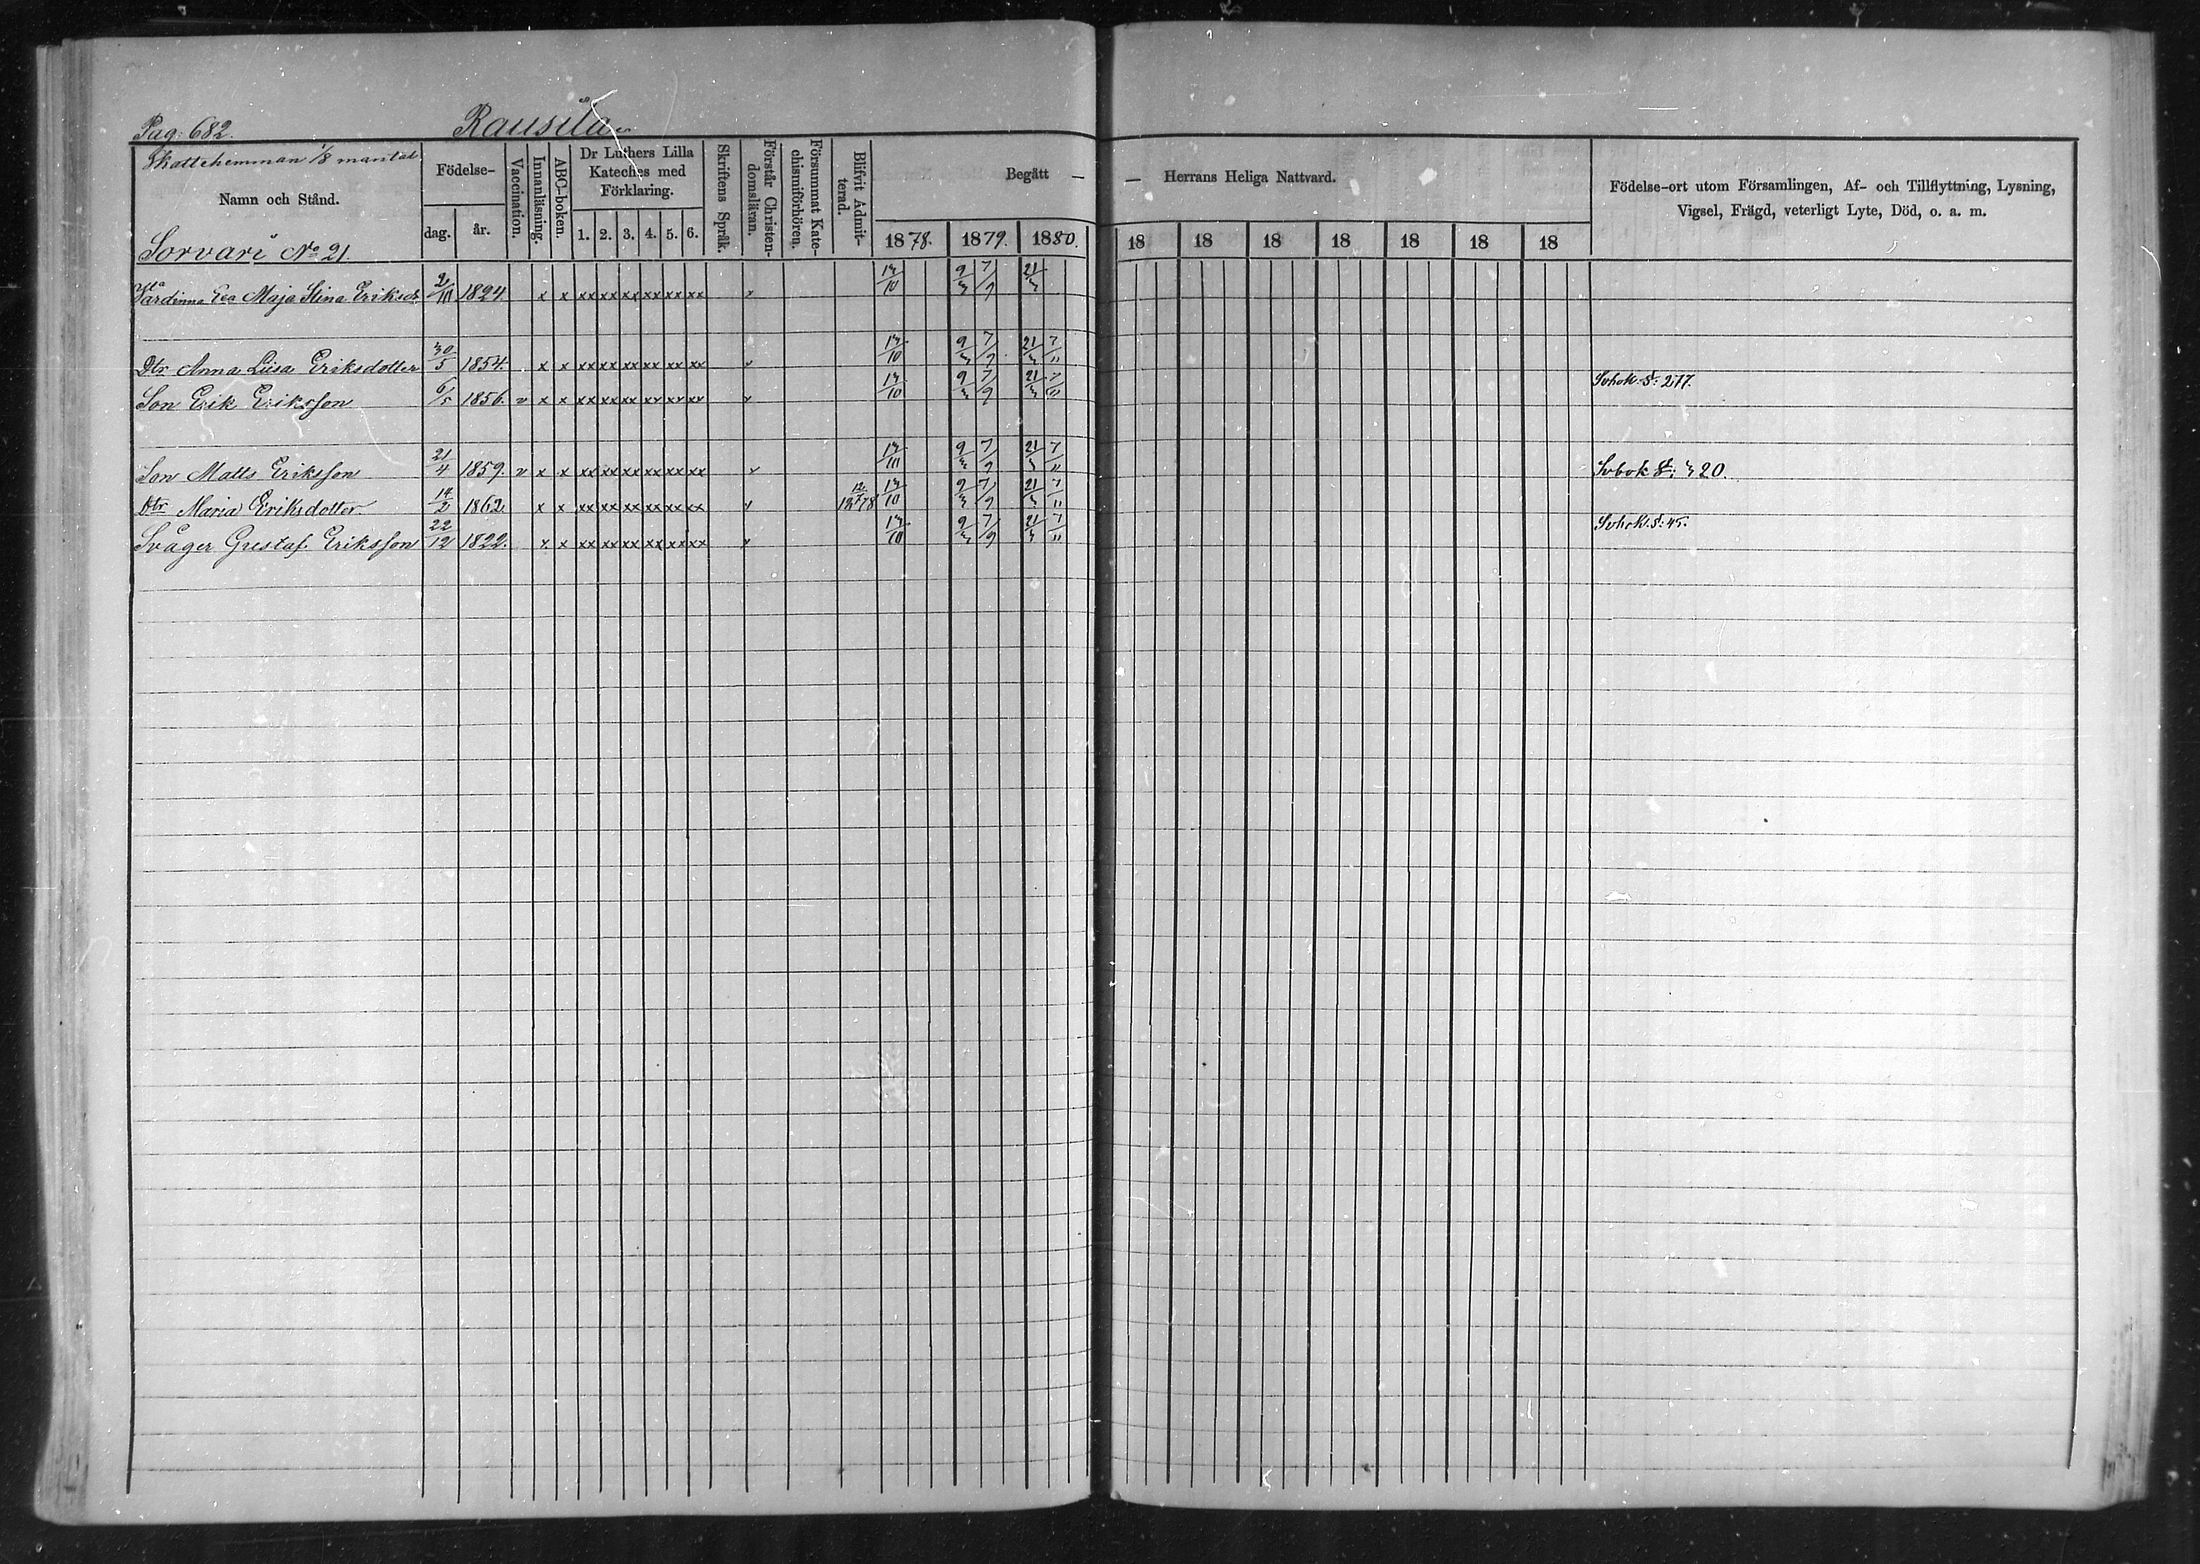 Pag: 682. Rausila
Skattehemman 1/8 mantal
Namn och Stånd.
Sorvari No 21.
Födelse-
dag. år.
Vaccination.
Innanläsning.
ABC-boken.
Dr Luthers Lilla
Kateches med
Förklaring.
1. 2. 3. 4. 5. 6.
Skriftens Språk.
Förstår Christen-
domsläran.
Försummat Kate-
chismiförhören.
Blifvit Admit-
terad.
Begått — — Herrans Heliga Nattvard.
1878. 1879. 1880. 18 18 18 18 18 18 18
Födelse-ort utom Församlingen, Af- och Tillflyttning, Lysning,
Vigsel, Frägd, veterligt Lyte, Död, o. a. m.
Värdinna Maja Stina Eriksdr 1824 x x xx xx xx xx xx xx 9/3 7/9 21/3
Dtr Anna Lisa Eriksdotter 30/5 1854. x x xx xx xx xx xx xx 9/3 7/9 21/3 7/11
Son Erik Eriksson 6/5 1856. v x x xx xx xx xx xx xx 9/3 7/9 21/3 7/11
Son Matts Eriksson 21/4 1859. v x x xx xx xx xx xx xx 9/3 7/9 21/3 7/11
Dtr Maria Eriksdotter 14/2 1862. x x xx xx xx xx xx xx 9/3 7/9 21/3 7/11
Svåger Gustaf Eriksson 22/12 1822. x x xx xx xx xx xx xx 9/3 7/9 21/3 7/11
S: 277.
S: 320.
S: 45.